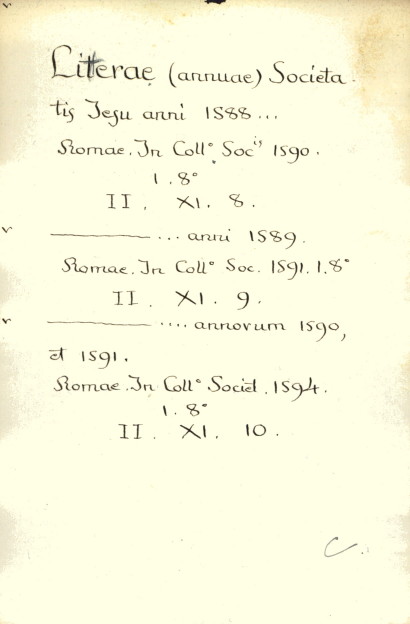 Litterae (annuae) Societa
tis Jesu anni 1588 ...
Romae. In Coll° Soc" 1590.
1. 8°
II. XI. 8.
——— ... anni 1589.
Romae. In Coll° Soc. 1591. 1. 8°
II. XI. 9.
——— .... annorum 1590,
et 1591.
Romae. In Coll° Societ. 1594.
1. 8°
II. XI. 10.
C.